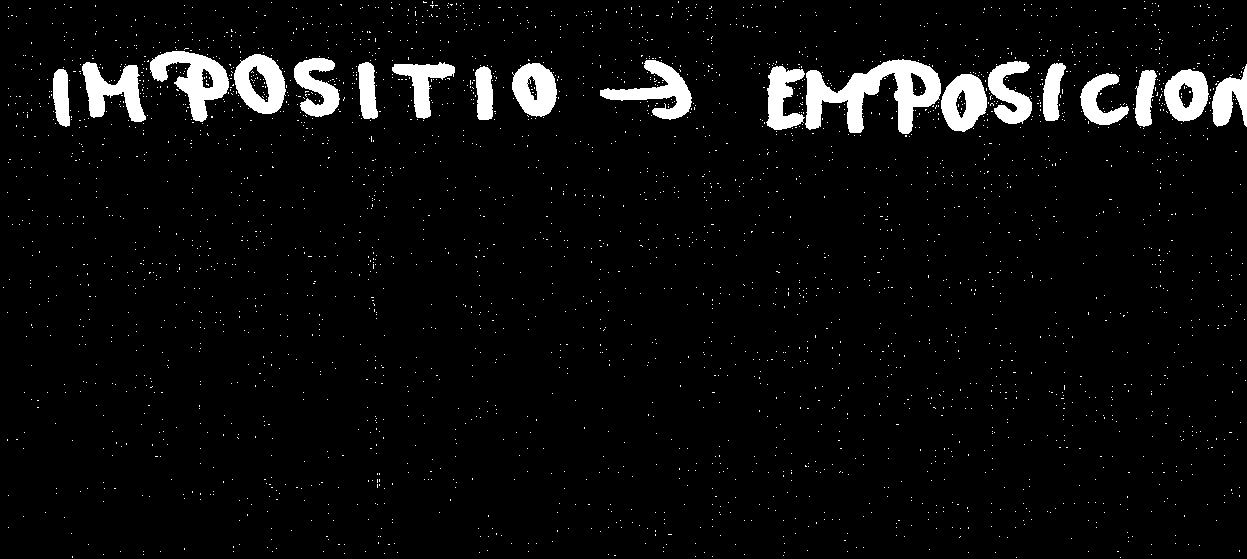 IMPOSITIO → EMPOSICION